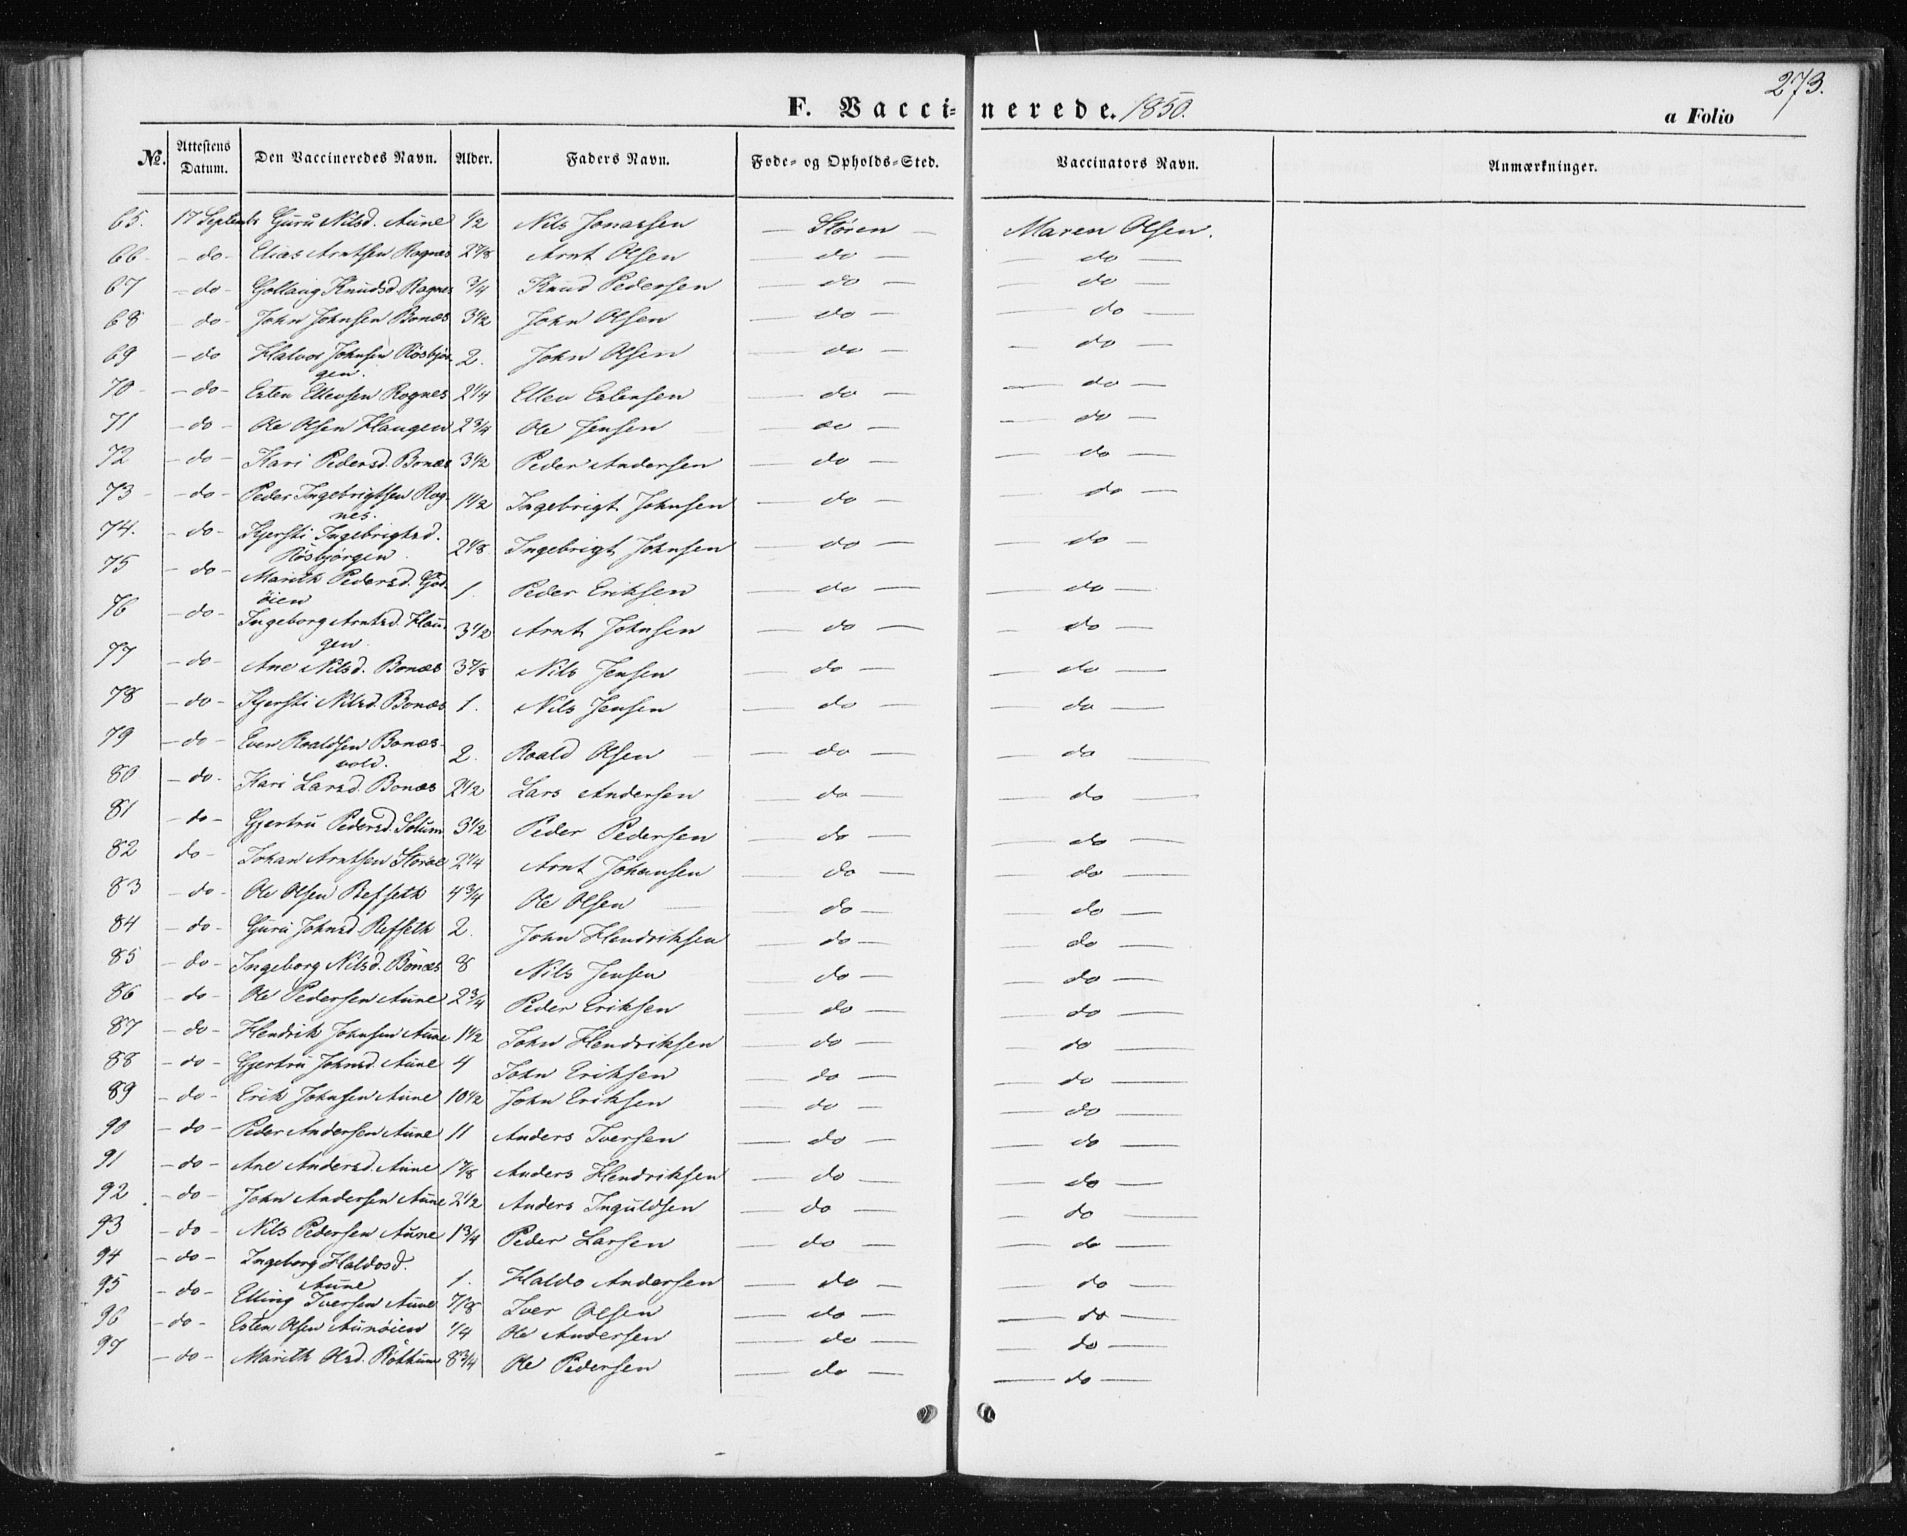 273.
F. Vaccinerede. 1850.
a Folio
No. Attestens Datum. Den Vaccineredes Navn. Alder. Faders Navn. Føde- og Opholds-Sted. Vaccinators Navn. Anmærkninger.
65. 17 Septembr Guru Nilsd. Aune 1/2 Nils Jonassen — Støren — Maren Olsen.
66 - do - Elias Arntsen Rognes 2 1/8 Arnt Olsen — do — — do —
67 - do - Gollaug Knudsd. Rognes 3/4 Knud Pedersen — do — — do —
68 - do - John Johnsen Bones 3 1/2 John Olsen — do — — do —
69 - do Halvor Johnsen Røsbjør- 2. John Olsen — do — — do —
gen.
70 - do - Esten Ellevsen Rognes 2 1/4 Ellev Estensen — do — — do —
71 - do - Ole Olsen Haugen 2 3/4 Ole Jensen — do — — do —
72 - do - Kari Pedersd. Bones 3 1/2 Peder Andersen — do — — do —
73 - do - Peder Ingebrigtsen Rog- 1 1/2 Ingebrigt Johnsen — do — — do —
nes.
74. - do - Kjersti Ingebrigtsd. 2 1/8 Ingebrigt Johnsen — do — — do —
Røsbjørgen
75 - do - Marith Pedersd. God- 1. Peder Eriksen — do — — do —
øien
76 - do - Ingeborg Arntsd. Hau- 3 1/2 Arnt Johnsen — do — — do —
gen
77 - do - Ane Nilsd. Bones 3 7/8 Nils Jensen — do — — do —
78 - do - Kjersti Nilsd. Bones 1. Nils Jensen — do — — do —
79 - do - Even Roaldsen Bones- 2. Roald Olsen — do — — do —
vold.
80 - do - Kari Larsd. Bones 2 1/2 Lars Andersen — do — — do —
81 - do - Gjertru Pedersd. Solum 3 1/2 Peder Pedersen — do — — do —
82 do - Johan Arntsen Storøe 2 1/4 Arnt Johansen — do — — do —
83 - do - Ole Olsen Refseth 4 3/4 Ole Olsen — do — — do —
84 - do - Guru Johnsd. Refseth 2. John Hendriksen — do — — do —
85 - do - Ingeborg Nilsd. Bones 8 Nils Jensen — do — — do —
86 - do - Ole Pedersen Aune 2 3/4 Peder Eriksen — do — — do —
87 - do - Hendrik Johnsen Aune 1 1/2 John Hendriksen — do — — do —
88 - do - Gjertru Johnsd. Aune 4 John Eriksen — do — — do —
89 - do - Erik Johnsen Aune 10 1/2 John Eriksen — do — — do —
90 - do - Peder Andersen Aune 11 Anders Iversen — do — — do —
91 - do - Ane Andersd. Aune 1 7/8 Anders Hendriksen — do — — do —
92 - do - John Andersen Aune 2 1/2 Anders Inguldsen — do — — do —
93 - do - Nils Pedersen Aune 1 3/4 Peder Larsen — do — — do —
94 - do - Ingeborg Haldosd. 1. Haldo Andersen — do — — do —
Aune
95 - do - Elling Iversen Aune 7/8 Iver Olsen — do — — do —
96 - do - Esten Olsen Aunøien 1/4 Ole Andersen — do — — do —
97 - do - Marith Olsd. Røttum 8 3/4 Ole Pedersen — do — — do —